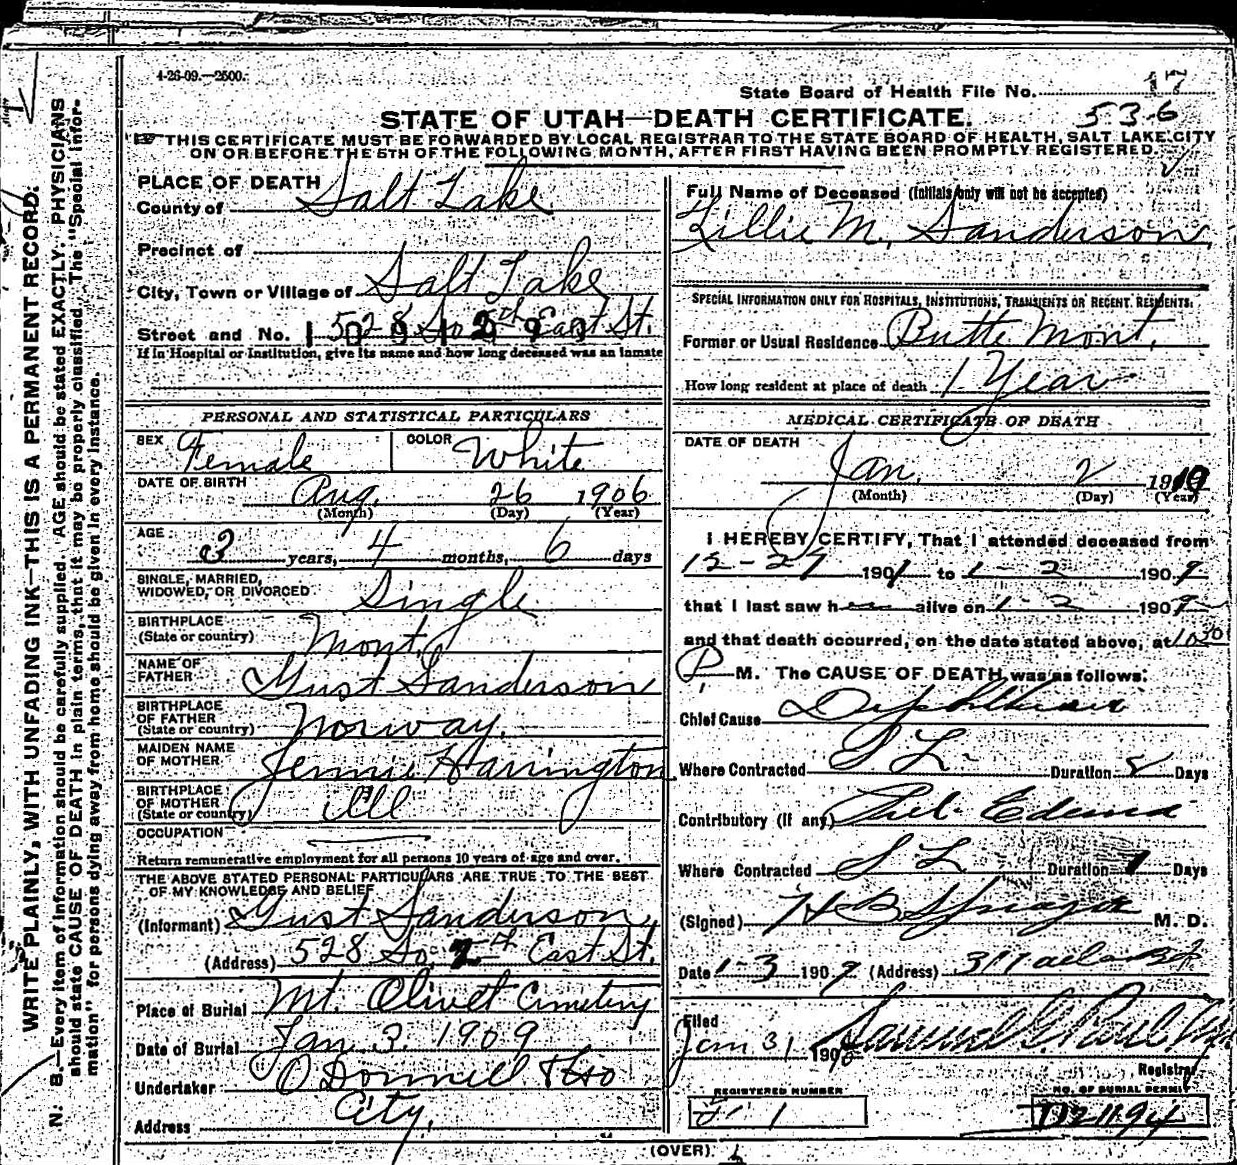 4-26-09.—2500.
State Board of Health File No. 17
536
STATE OF UTAH—DEATH CERTIFICATE.
THIS CERTIFICATE MUST BE FORWARDED BY LOCAL REGISTRAR TO THE STATE BOARD OF HEALTH, SALT LAKE CITY
ON OR BEFORE THE 5TH OF THE FOLLOWING MONTH, AFTER FIRST HAVING BEEN PROMPTLY REGISTERED.
WRITE PLAINLY, WITH UNFADING INK—THIS IS A PERMANENT RECORD.
N. B.—Every item of information should be carefully supplied. AGE should be stated EXACTLY. PHYSICIANS
should state CAUSE OF DEATH in plain terms, that it may be properly classified. The "Special Infor-
mation" for persons dying away from home should be given in every instance.
PLACE OF DEATH
County of Salt Lake
Precinct of
City, Town or Village of Salt Lake
Street and No. 528 So East St.
If in Hospital or Institution, give its name and how long deceased was an inmate
PERSONAL AND STATISTICAL PARTICULARS
SEX Female COLOR White
DATE OF BIRTH Aug. 26 1906
(Month) (Day) (Year)
AGE 3 years, 4 months, 6 days
SINGLE, MARRIED,
WIDOWED, OR DIVORCED Single
BIRTHPLACE
(State or country) Mont.
NAME OF
FATHER Gust Sanderson
BIRTHPLACE
OF FATHER
(State or country) Norway.
MAIDEN NAME
OF MOTHER Jennie Harrington
BIRTHPLACE
OF MOTHER
(State or country) Ill
OCCUPATION
Return remunerative employment for all persons 10 years of age and over.
THE ABOVE STATED PERSONAL PARTICULARS ARE TRUE TO THE BEST
OF MY KNOWLEDGE AND BELIEF
(Informant) Gust Sanderson
(Address) 528 So. East St.
Place of Burial Mt. Olivet Cemetery
Date of Burial Jan. 3. 1909
Undertaker O'Donnell & Co
Address City.
Full Name of Deceased (Initials only will not be accepted)
Lillie M. Sanderson
SPECIAL INFORMATION ONLY FOR HOSPITALS, INSTITUTIONS, TRANSIENTS OR RECENT RESIDENTS.
Former or Usual Residence Butte Mont.
How long resident at place of death 1 Year
MEDICAL CERTIFICATE OF DEATH
DATE OF DEATH
Jan. 2 1910
(Month) (Day) (Year)
I HEREBY CERTIFY, That I attended deceased from
12-27 190 to 1-2 1909
that I last saw her alive on 1-2 1909
and that death occurred, on the date stated above, at 10 30
P M. The CAUSE OF DEATH was as follows:
Chief Cause Diphtheria
Where Contracted S L Duration 8 Days
Contributory (if any) Edema
Where Contracted S L Duration 1 Days
(Signed) H B Sprague M. D.
Date 1-3 1909 (Address)
Filed
Jan 31 190 Samuel G. Paul
Registrar
REGISTERED NUMBER
1
NO. OF BURIAL PERMIT
(OVER)